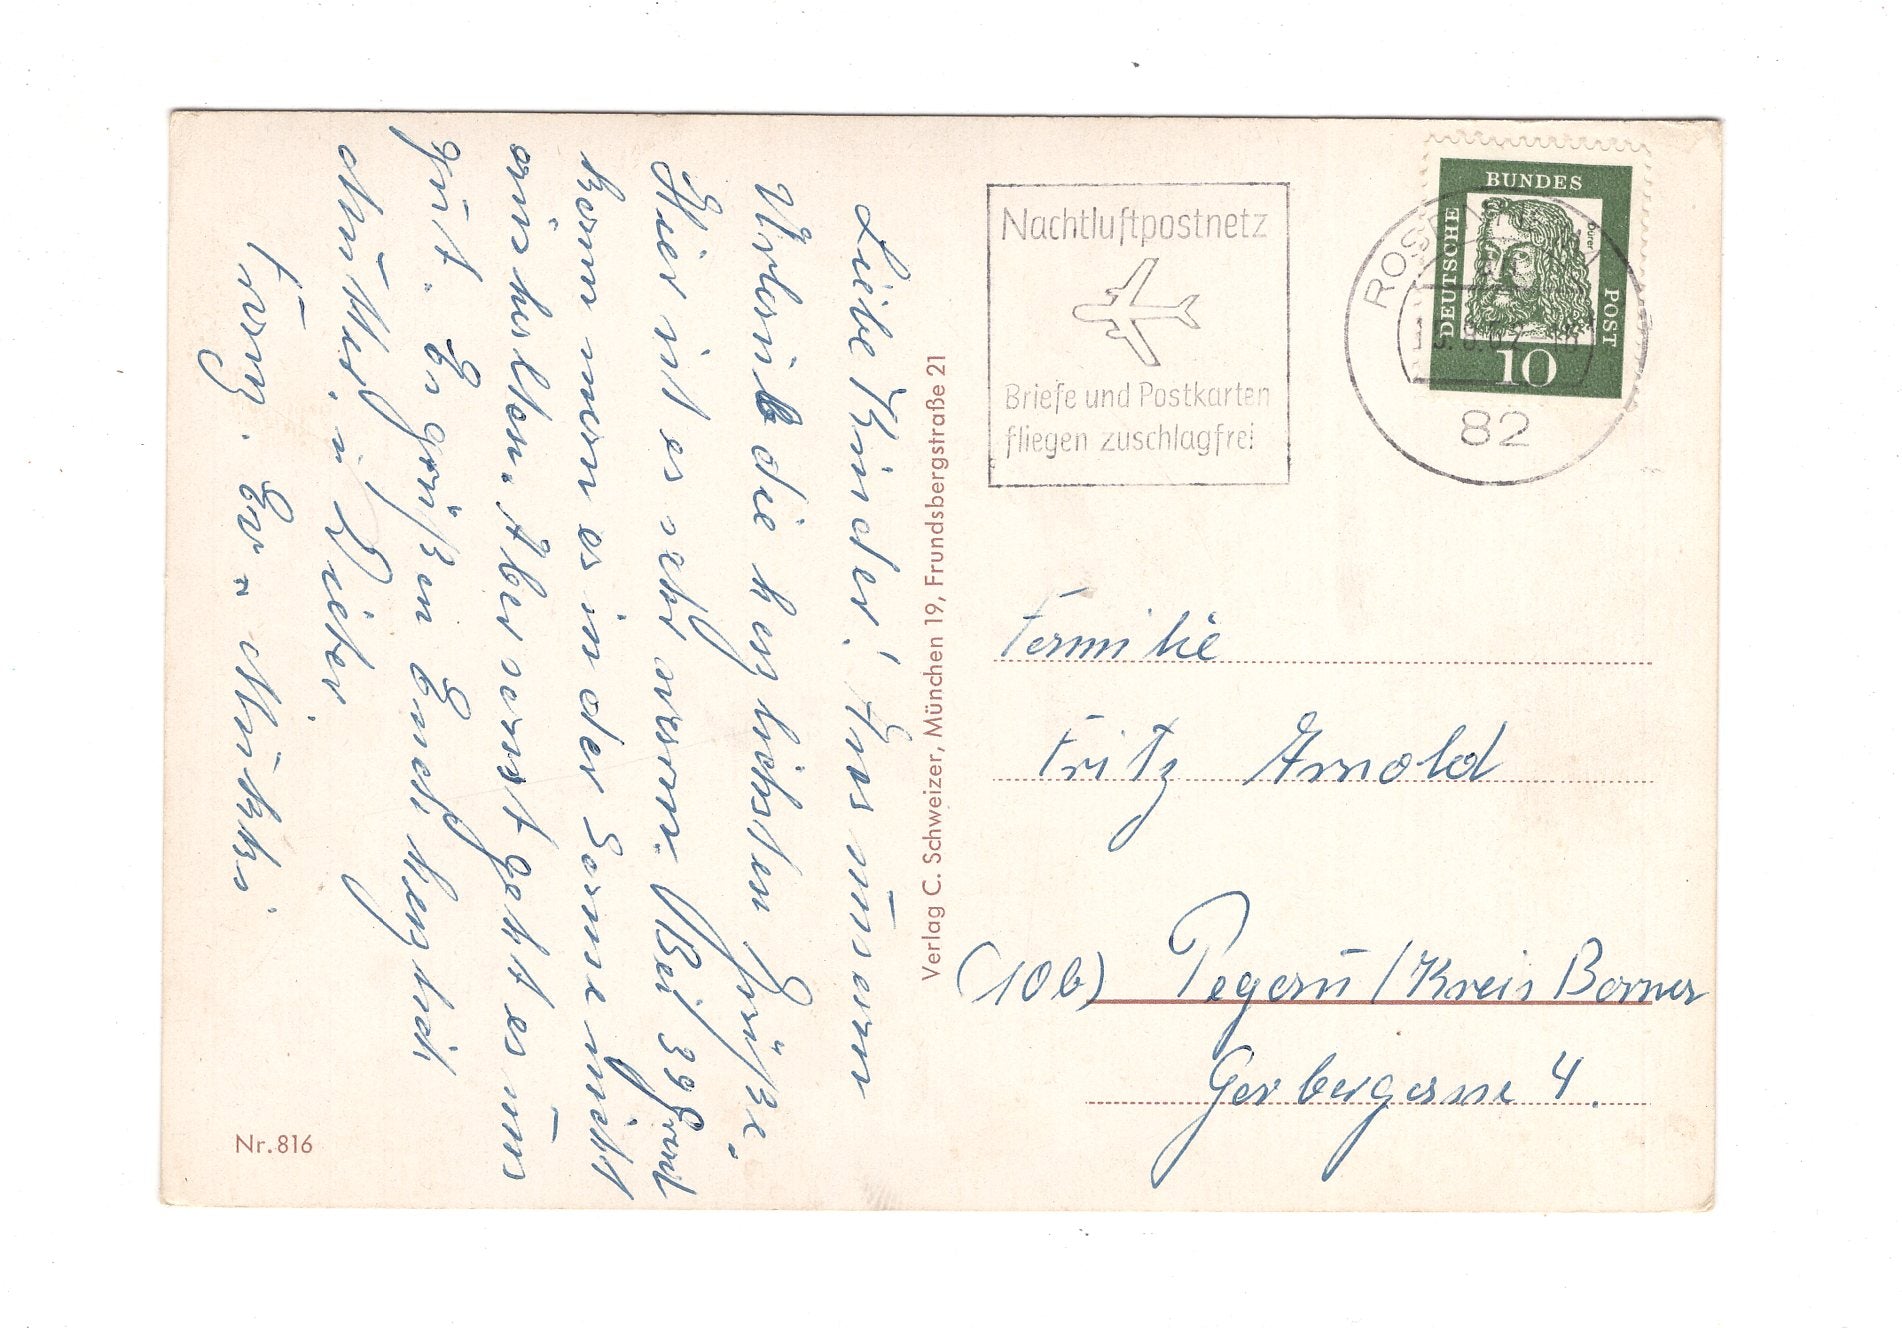 Liebe Kinder! Aus unserm
Urlaub die herzlichsten Grüße.
Hier ist es sehr warm. Bei 39 Grad
kann man es in der Sonne nicht
aushalten. Aber sonst geht es uns
gut. Es grüßen Euch herzlich
Mutter, Dieter
Franz. Eva Mutti
Nr. 816
Verlag C. Schweizer, München 19, Frundsbergstraße 21
Nachtluftpostnetz
Briefe und Postkarten
fliegen zuschlagfrei
82
DEUTSCHE
BUNDES
POST
Dürer
10
Familie
Fritz Arnold
(10b) Pegau / Kreis Borna
Gerbergasse 4.